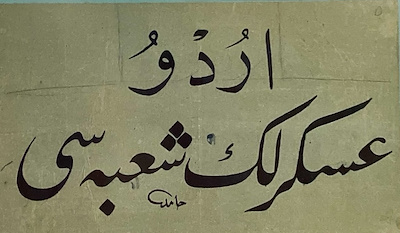 اُردْوُ
عسكرلك شعبه سى
حامد